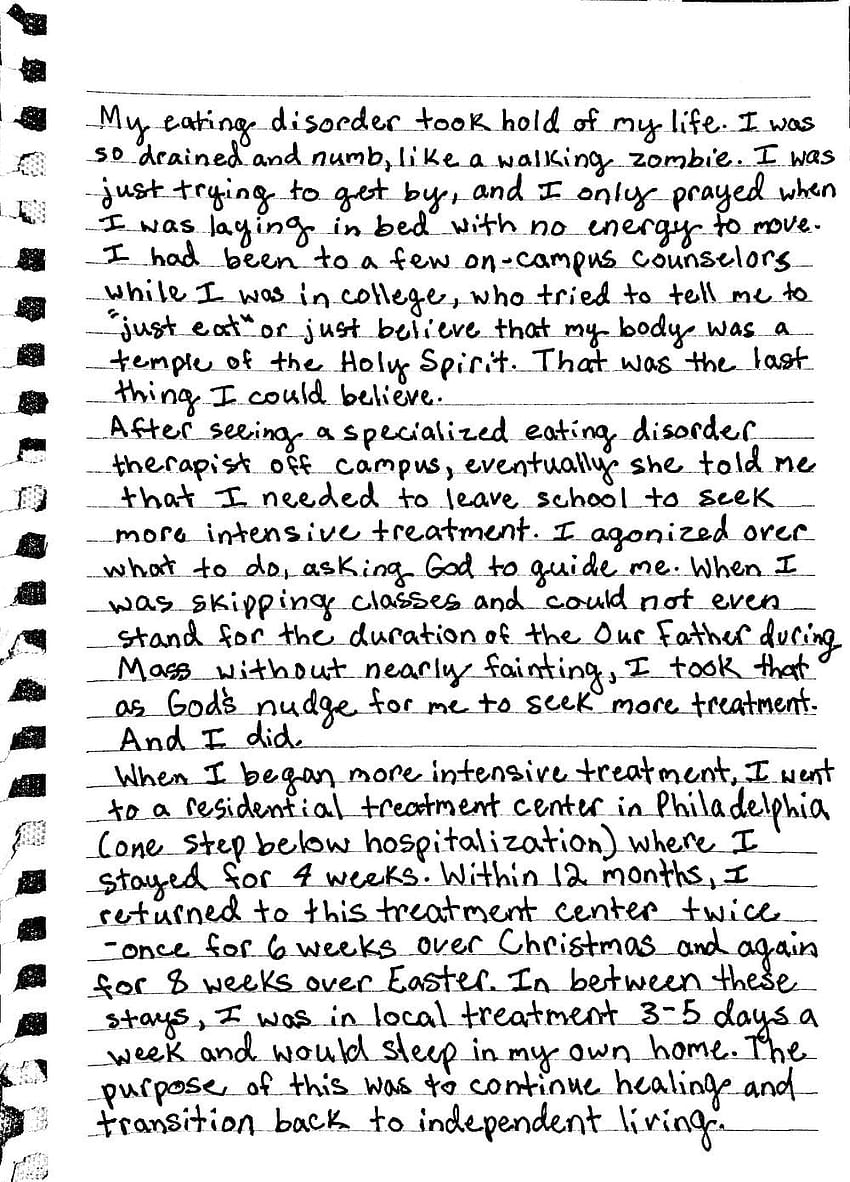 My eating disorder took hold of my life. I was
so drained and numb, like a walking zombie. I was
just trying to get by, and I only prayed when
I was laying in bed with no energy to move.
I had been to a few on-campus counselors
while I was in college, who tried to tell me to
"just eat" or just believe that my body was a
temple of the Holy Spirit. That was the last
thing I could believe.
After seeing a specialized eating disorder
therapist off campus, eventually she told me
that I needed to leave school to seek
more intensive treatment. I agonized over
what to do, asking God to guide me. When I
was skipping classes and could not even
stand for the duration of the Our Father during
Mass without nearly fainting, I took that
as God's nudge for me to seek more treatment.
And I did.
When I began more intensive treatment, I went
to a residential treatment center in Philadelphia
(one step below hospitalization) where I
stayed for 4 weeks. Within 12 months, I
returned to this treatment center twice
-once for 6 weeks over Christmas and again
for 8 weeks over Easter. In between these
stays, I was in local treatment 3-5 days a
week and would sleep in my own home. The
purpose of this was to continue healing and
transition back to independent living.